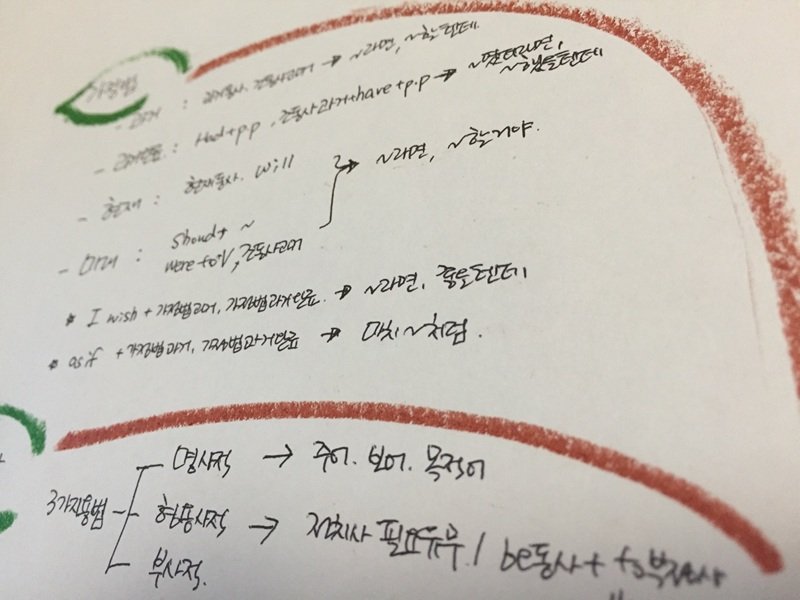 가정법
- 과거 : 과거동사. 조동사과거 → ~라면, ~할텐데
- 과거완료 : Had+p.p , 조동사과거+have+p.p → ~했더라면, ~했을텐데
- 현재 : 현재동사. will → ~라면, ~할거야.
- 미래 : Shoud+ ~
were to V, 조동사과거
* I wish + 가정법과거, 가정법과거완료. → ~라면, 좋을텐데
* as if + 가정법과거, 가정법과거완료 → 마치 ~처럼.
3가지용법
명사적 → 주어. 보어. 목적어
형용사적 → 전치사 필요유무 / be동사 + to부정사
부사적.